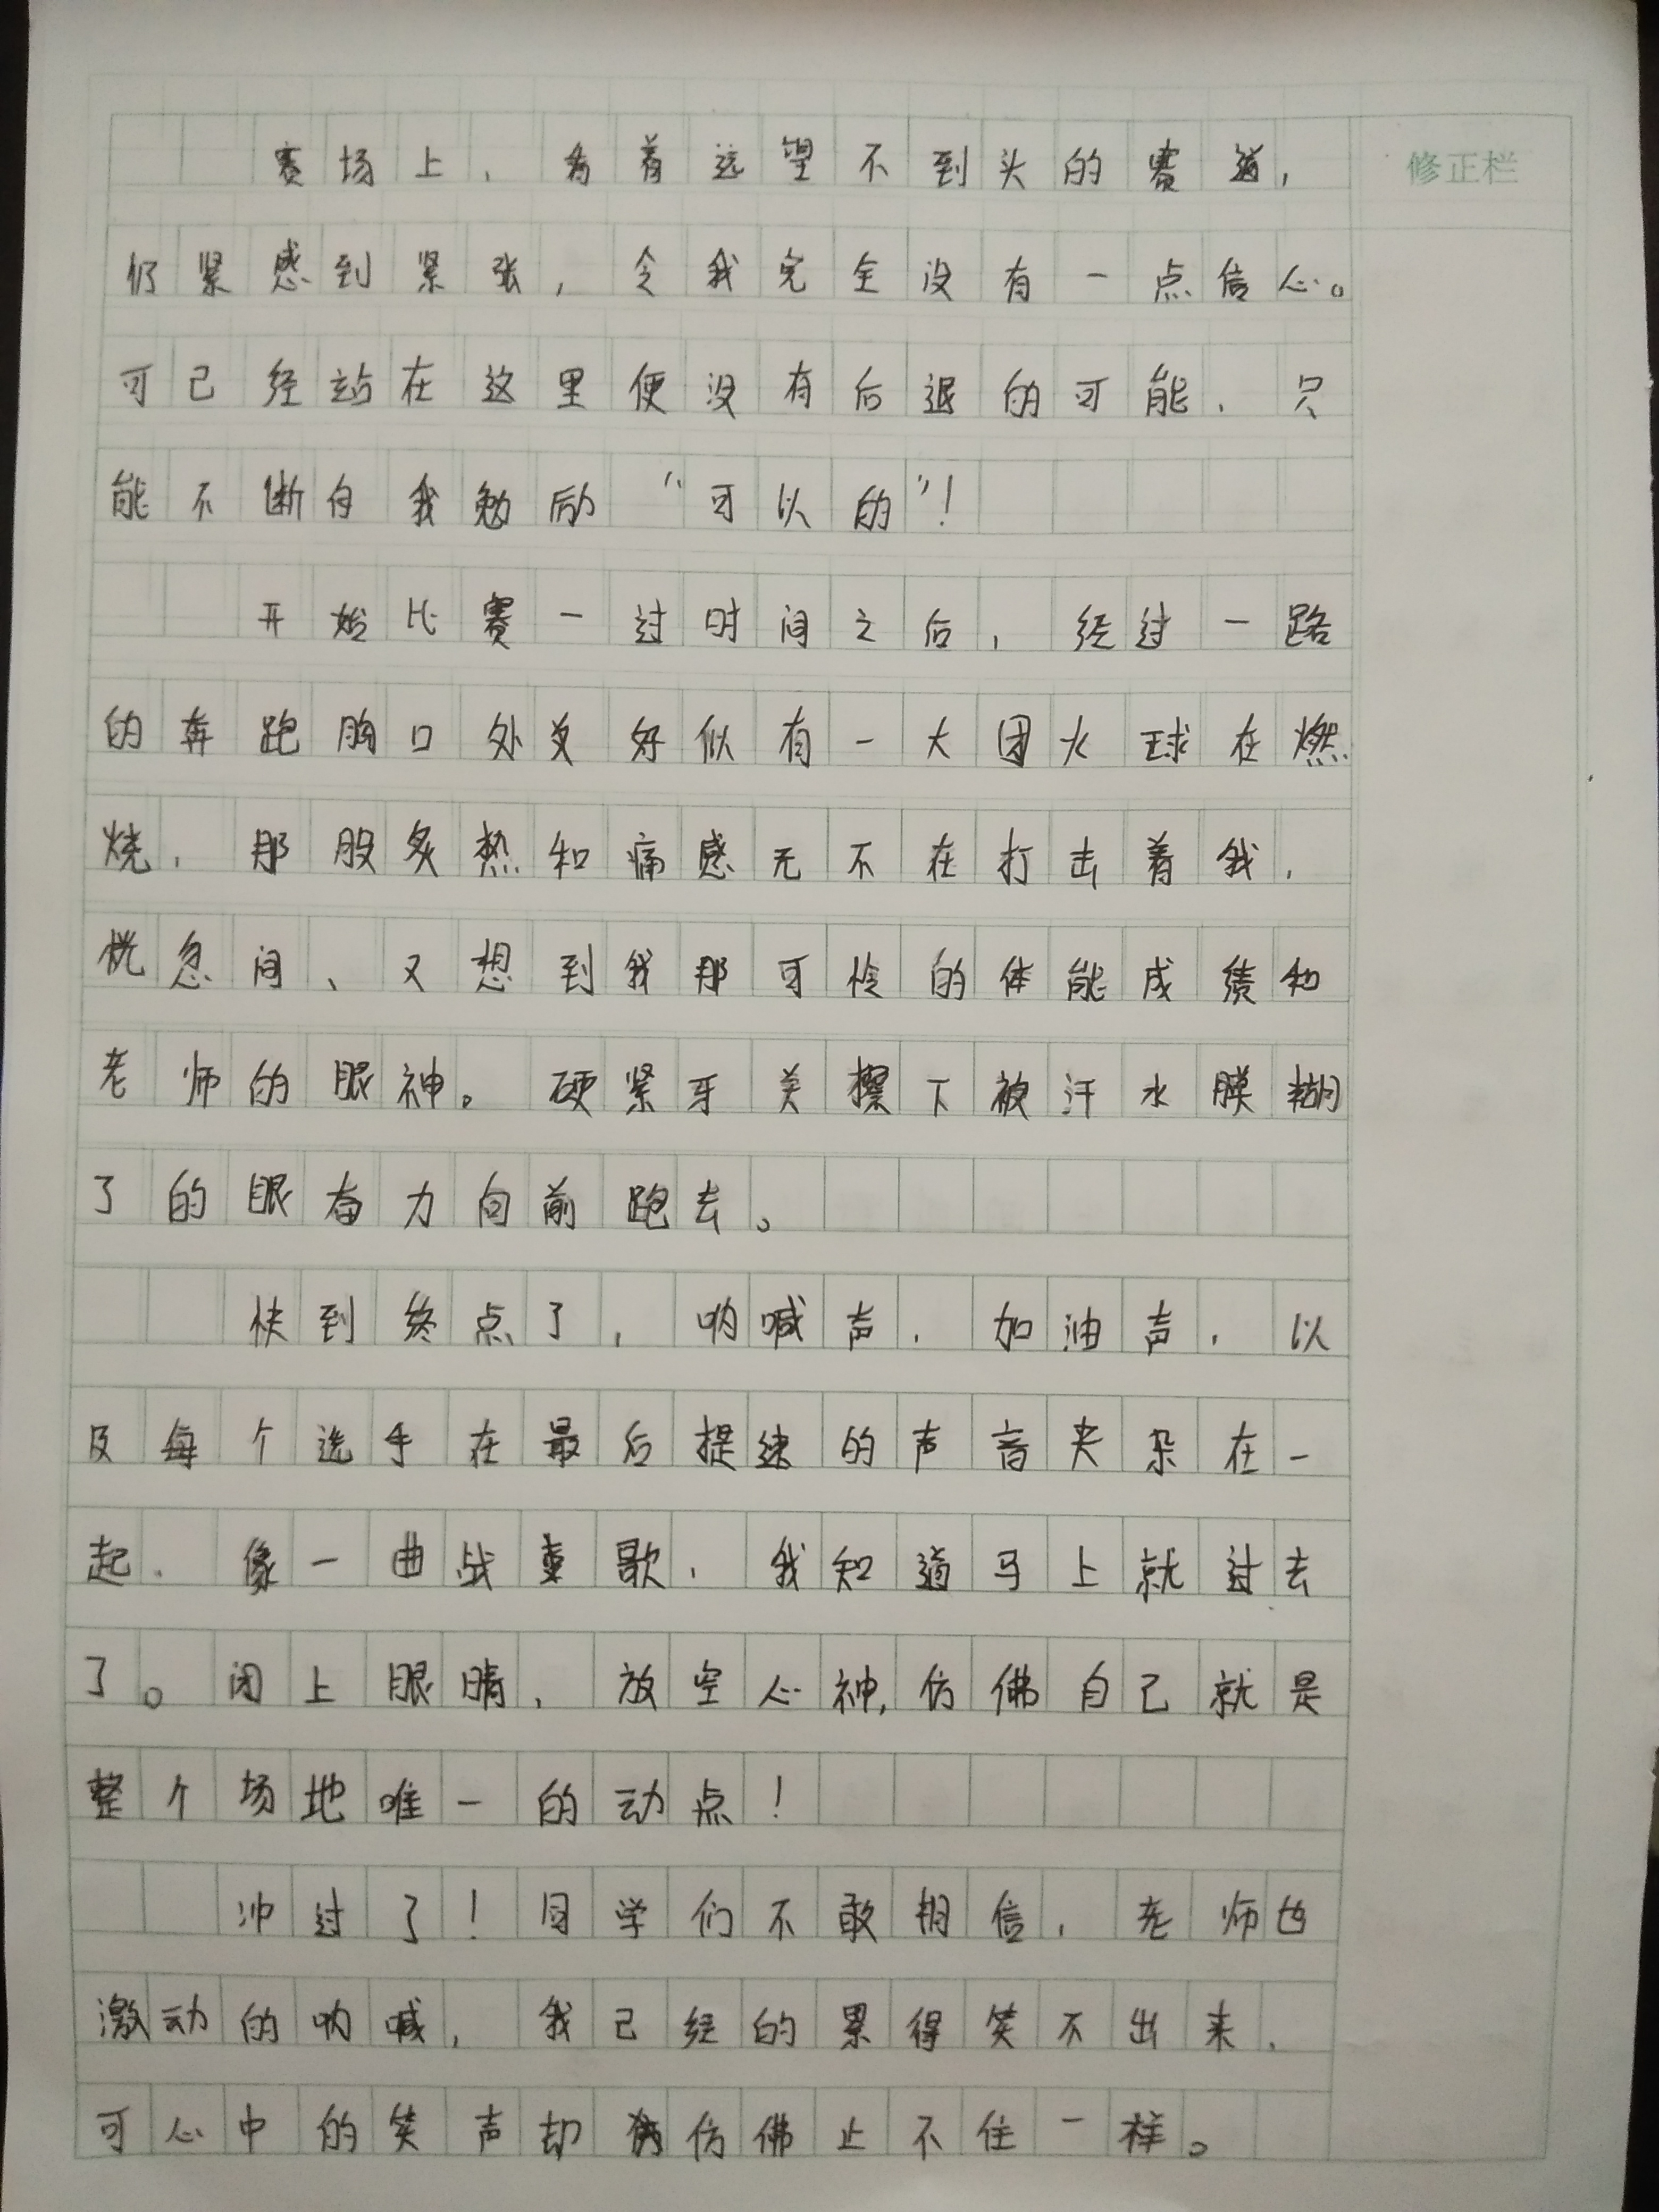 修正栏
赛场上，看着远望不到头的赛道，
仍紧感到紧张，令我完全没有一点信心。
可已经站在这里便没有后退的可能，只
能不断自我勉励“可以的”！
开始比赛一过时间之后，经过一路
的奔跑胸口处更好似有一大团火球在燃
烧，那股炙热和痛感无不在打击着我，
恍忽间、又想到我那可怜的体能成绩和
老师的眼神。硬紧牙关擦下被汗水膜糊
了的眼奋力向前跑去。
快到终点了，呐喊声，加油声，以
及每个选手在最后提速的声音夹杂在一
起，像一曲战歌，我知道马上就过去
了。闭上眼睛，放空心神，仿佛自己就是
整个场地唯一的动点！
冲过了！同学们不敢相信，老师也
激动的呐喊，我已经的累得笑不出来，
可心中的笑声却仿佛止不住一样。